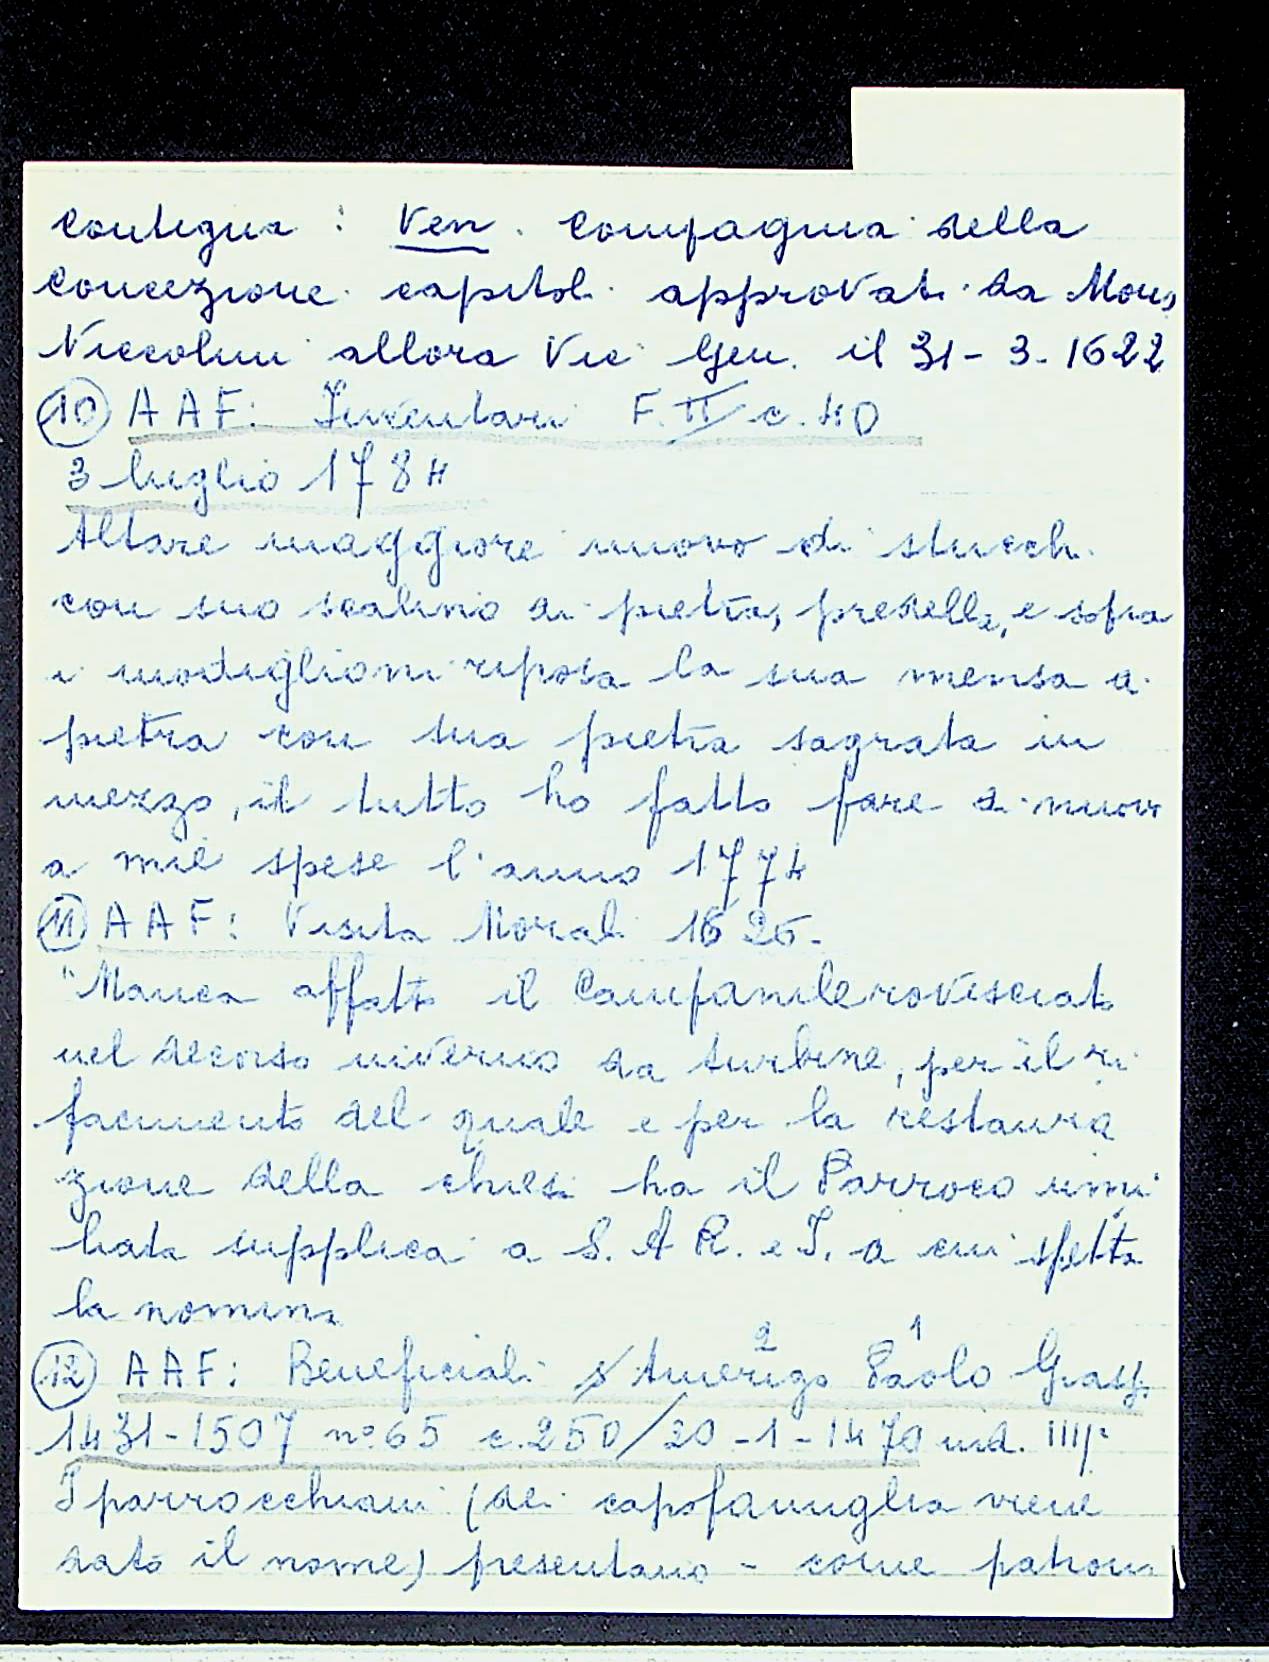 contigua : Ven. Compagnia della
Concezione capitoli approvati da Mons.
Niccolini allora Vic Gen. il 31-3-1622
(10) AAF: Inventari F.II c.40
3 luglio 1784
Altare maggiore nuovo di stucchi
con suo scalino di pietra, predella, e sopra
i modiglioni riposa la sua mensa di
pietra con sua pietra sagrata in
mezzo, il tutto ho fatto fare di nuovo
a mie spese l'anno 1774
(11) AAF: Visita Morali 1626.
"Manca affatto il Campanile rovesciato
nel decorso inverno da turbine, per il ri
facimento del quale e per la restaura
zione della chiesa ha il Parroco umi
liata supplica a S. A R. e I. a cui spetta
la nomina
(12) AAF: Beneficiali s Amerigo 2 Paolo 1
1431-1507 n° 65 c.250/20-1-1470 ind. IIIIª
I parrocchiani (dei capofamiglia viene
dato il nome) presentano - come patroni